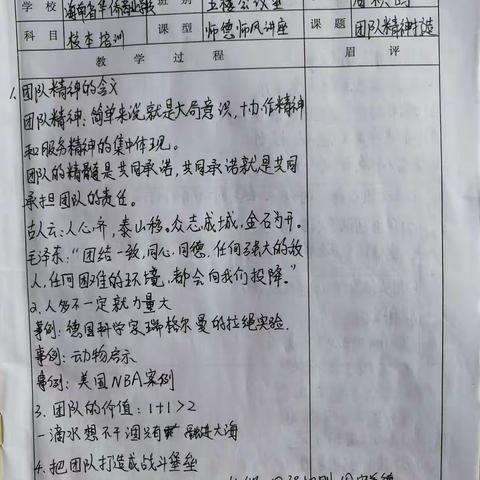 学校 海南省华侨商业学校 班别 五楼会议室
科目 校本培训 课型 师德师风讲座 课题 团队精神打造
教学过程 眉评
1、团队精神的含义
团队精神：简单来说就是大局意识，协作精神
和服务精神的集中体现。
团队的精髓是共同承诺，共同承诺就是共同
承担团队的责任。
古人云：人心齐，泰山移。众志成城，金石为开。
毛泽东：“团结一致，同心同德，任何强大的敌
人，任何困难的环境，都会向我们投降。”
2、人多不一定就力量大
事例：德国科学家瑞格尔曼的拉绳实验.
事例：动物启示
事例：美国NBA案例
3. 团队的价值：1+1＞2
一滴水想不干涸只有 融进大海
4. 把团队打造成战斗堡垒